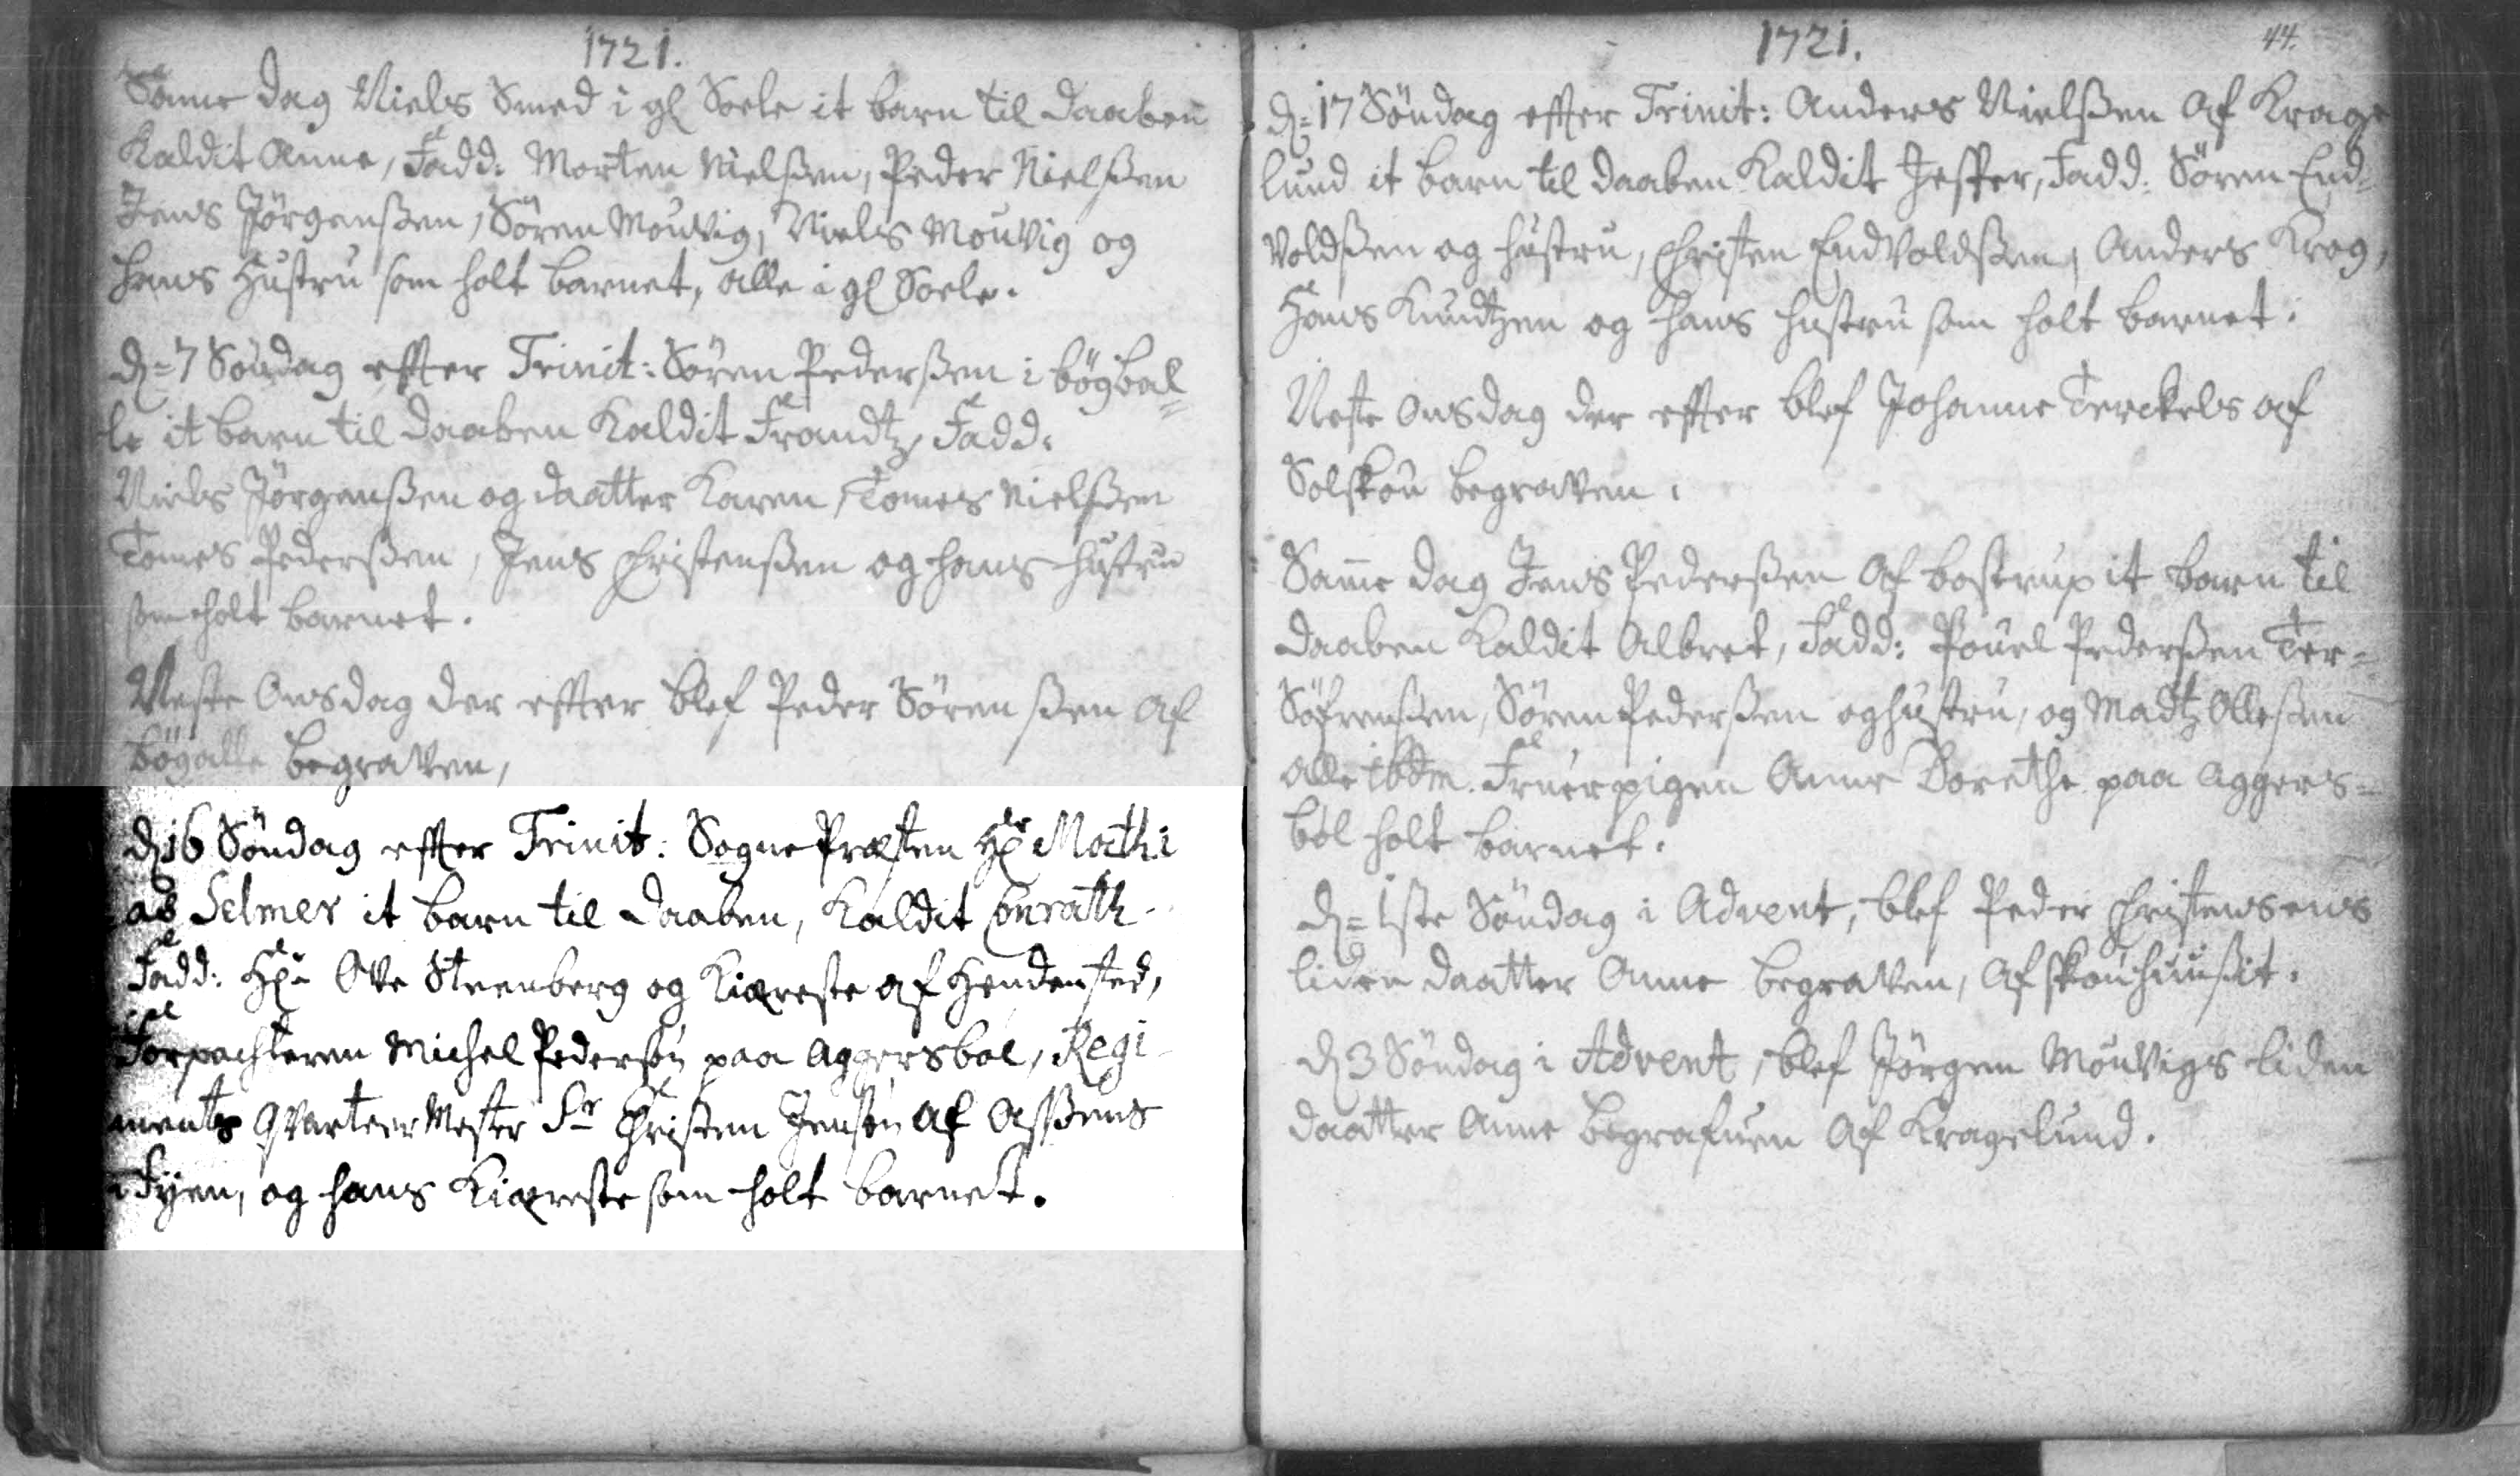 1721.
Samme dag Niels Smed i gl Soele it barn til Daaben
Kaldit Anne, Fadd: Morten Nielsßen, Peder Nielsßen
Jens Jörgensßen, Sören Mouvig, Niels Mouvig og
hans Hustru som holt barnet, alle i gl Soele.
d=7 Söndag effter Trinit: Sören Pedersßen i bögbal=
le it barn til Daaben Kaldit Frandtz, Fadd:
Niels Jörgensßen og daatter Karen, Tomes Nielsßen
Tomes Pedersßen, Jens Christensßen og hans hustru
som holt barnet.
Neste Onsdag der effter blef Peder Sörensßen af
bögalle begraven,
d 16 Söndag effter Trinit: Sogne Præsten Hr Mathi
as Selmer it barn til Daaben, Kaldit Conrath
Fadd: Hr: Ove Steenberg og Kiæreste af Hendensted,
Forpachteren Michel Pedersön paa Aggersböl, Regi
ments Qvarteer Mester Sr Christen Jensön af Asßens
i Fyen, og hans Kiæreste som holt barnet.
1721.
44.
d=17 Söndag effter Trinit: Anders Nielsßen af Krage
lund it barn til Daaben Kaldit Jesper, Fadd: Sören End=
voldsßen og hustru, Christen Endvoldsßen, Anders Krog,
Hans Kundtzen og hans hustru som holt barnet.
Neste Onsdag der effter blef Johanne Terckels af
Solskou begraven.
Samme dag Jens Pedersßen af bostrup it barn til
Daaben Kaldit Albret, Fadd: Pouel Pedersßen Ter=
Söfrensßen, Sören Pedersßen og hustru, og Madtz Ollesßen
alle ibdm. Fruerpigen Anne Dorethe paa Aggers=
böl holt barnet.
d=1ste Söndag i Advent, blef Peder Christensens
liden daatter Anne begraven, af skouhuusßit.
d 3 Söndag i Advent, blef Jörgen Mouvigs liden
daatter Anne begrafuen af Kragelund.